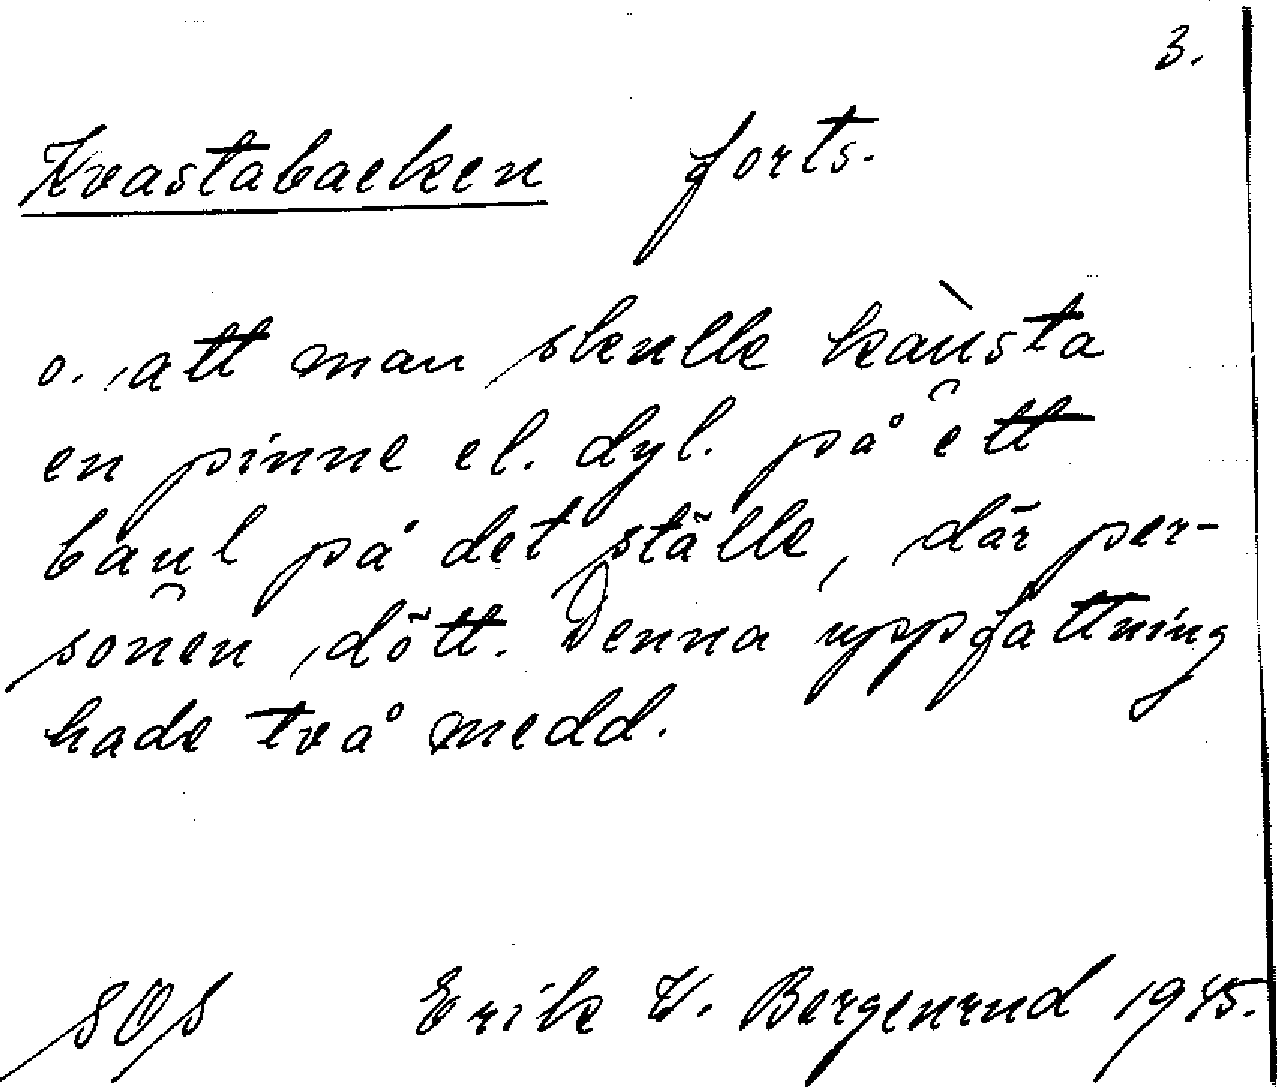 3.
Kvastabacken forts.
o. att man skulle kàusta
en pinne el. dyl. på ett
baul på det ställe, där per-
sonen dött. Denna uppfattning
hade två medd.
SOS Erik K. Bergenrud 1945.